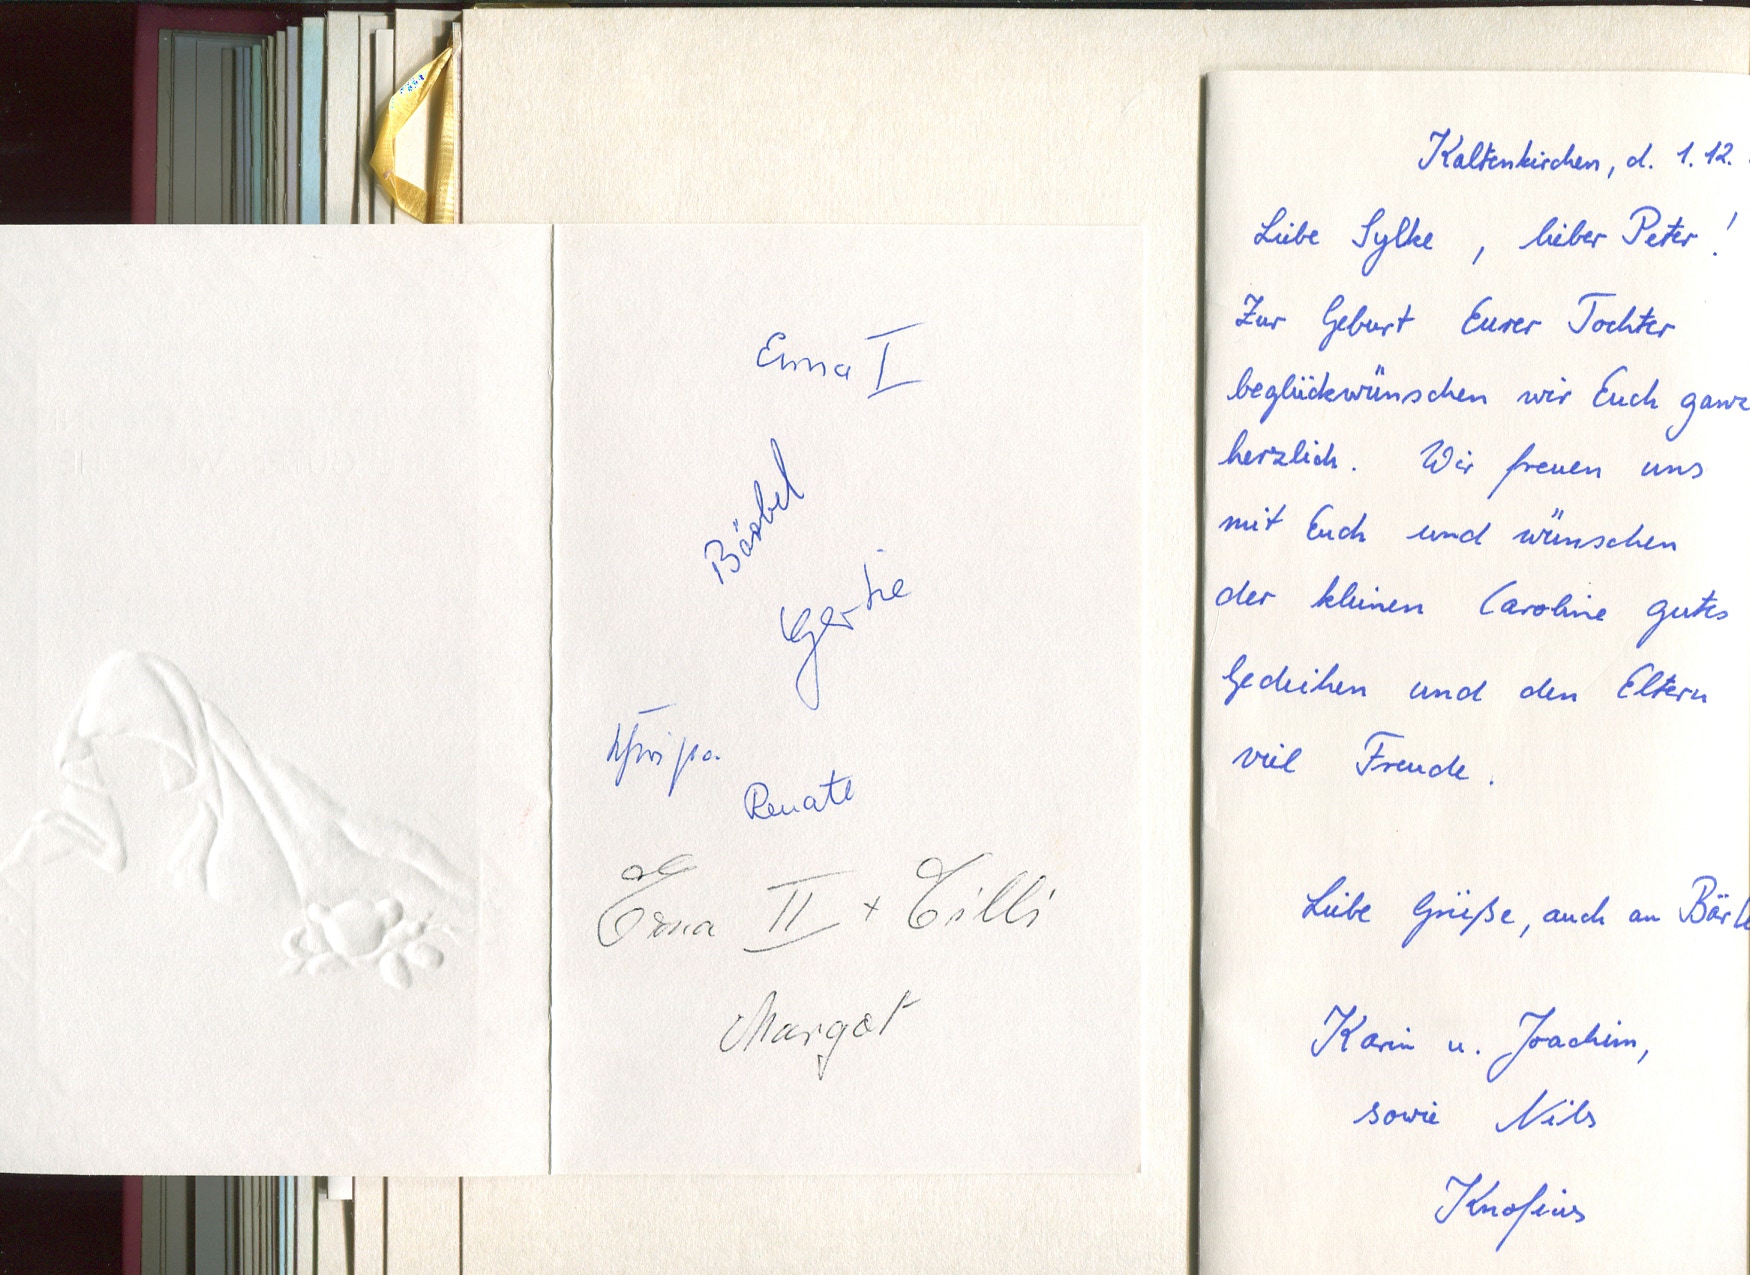 Erna I
Bärbel
Gertie
Renate
Erna II + Cilli
Margot
Kaltenkirchen, d. 1.12.
Liebe Sylke, lieber Peter!
Zur Geburt Eurer Tochter
beglückwünschen wir Euch ganz
herzlich. Wir freuen uns
mit Euch und wünschen
der kleinen Caroline gutes
Gedeihen und den Eltern
viel Freude.
Liebe Grüße, auch an
Karin u. Joachim,
sowie Nils
Knofius